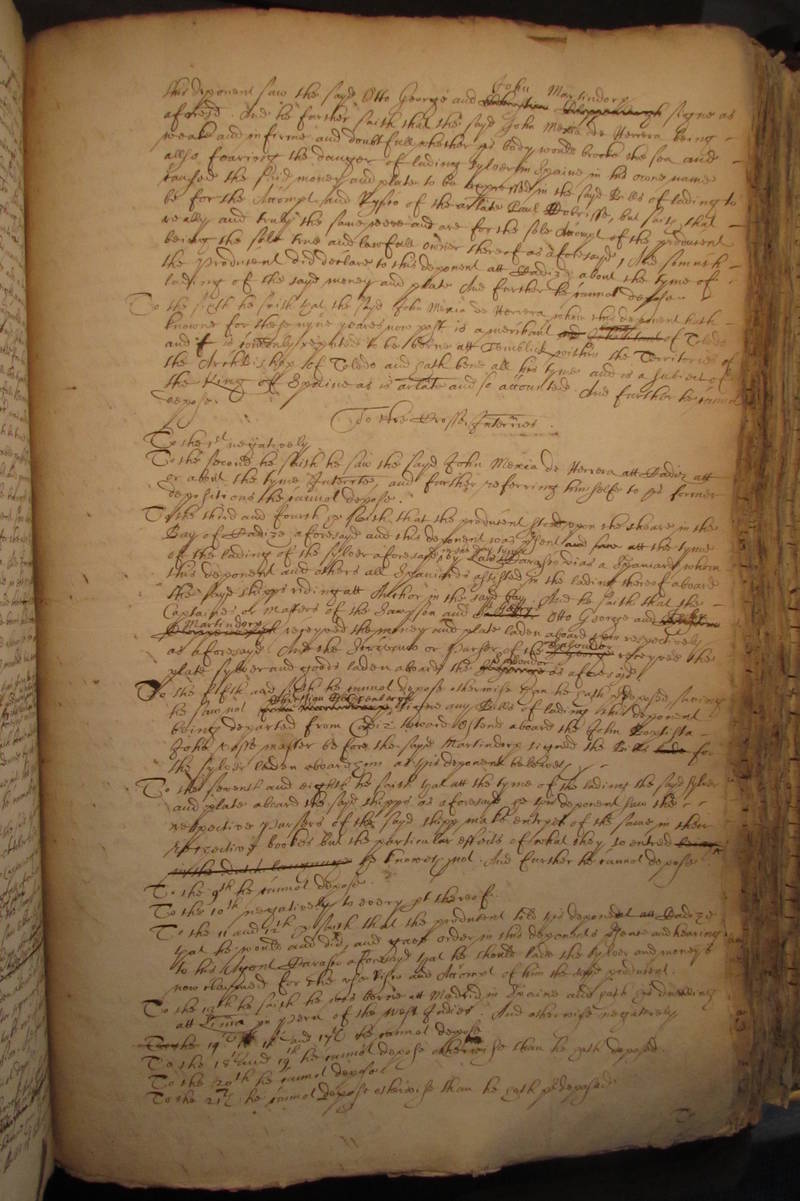 this deponent saw the sayd Otto George and John Martindorp signe as
aforesd. And he further saith that the sayd John Mexia de Herrera being
weake and infirme and doubtfull whether his body would brooke the sea and
allso fearing the danger of lading sylver in Spaine in his owne name
caused the said money and plate to be expressed in the sayd Bills of lading to
be for the Accompt and Risgo of the arlate Paul but saith that
really and truly the same were and are for the sole Accompt of the producent
being the sole true and lawfull owner thereof as aforesayd, And soe much
the Producent did declare to this deponent att Cadiz about the tyme of
lading of the sayd money and plate And further he cannot depose.
To the sixth he saith that the sayd John Mexia de Herrera whom this deponent hath
knowne for these nyne yeares now past is a merchant of Toledo
and is commonly reputed to be borne att within the Territories of
the ArchBishop of Toledo and hath bene all his tyme and is a subiect of
the King of Spaine as is arlate and so accounted. And further he cannot
depose.
To the Crosse Interries.
To the 1st negatively
To the second he saith he saw the sayd John Mexia de Herrera att Cadiz att
or about the tyme Interrate, and further referring himselfe to his former
depositions he cannot depose.
To the third and fourth he saith that the producent stood upon the shoare in the
Bay of Cadiz aforesayd and this deponent was present att the tyme
of the lading of the sylver aforesayd a Spaniard whom
this deponent and others all Spaniards assisted in the lading thereof aboard
the sayd shipps riding att Anchor in the sayd bay. And he saith that the
Captaines or Masters of the Sampson and Otto George and
Martindorp received the money and plate laden aboard them respectively
as aforesayd. And the or Purser of the Salvador received the
plate sylver and goods laden aboard the Salvador as aforesaid
To the fifth and sixth he cannot depose otherwise than he hath deposed, saving
he saw not signe any Bills of lading this deponent
being departed from Cadiz toward Ostend aboard the John Baptista
John master before the sayd Martindorp signed the Bills for
the sylver laden aboard him as this deponent beleeves
To the seventh and eighth he saith that att the tyme of the lading the sayd sylver
and plate aboard the sayd shipps as aforesayd he this deponent saw the
respective Pursers of the sayd shipps make entrys of the same in their
respective bookes but the particular effects of what they so entred
in the dutch language he knoweth not. And further he cannot depose
To the 9th he cannot depose.
To the 10th negatively to every pt thereof.
To the 11 and 12th he saith that the producent told this deponent att Cadiz
that he would and did, and gave order in this deponents presence and hearing
to his Agent aforesayd that he should lade the sylver and moneys
now claymed for the use Risgo and Accompt of him the sayd producent.
To the 13th he saith he was borne att Madrid in Spaine and hath his dwelling
att Lima in Peru of the West Indies. And otherwise negatively
To the 17th he cannot depose
To the 18th and 19th he cannot depose otherwise than he hath deposed.
To the 20th he cannot depose
To the 21th he cannot depose otherwise than he hath predeposed.